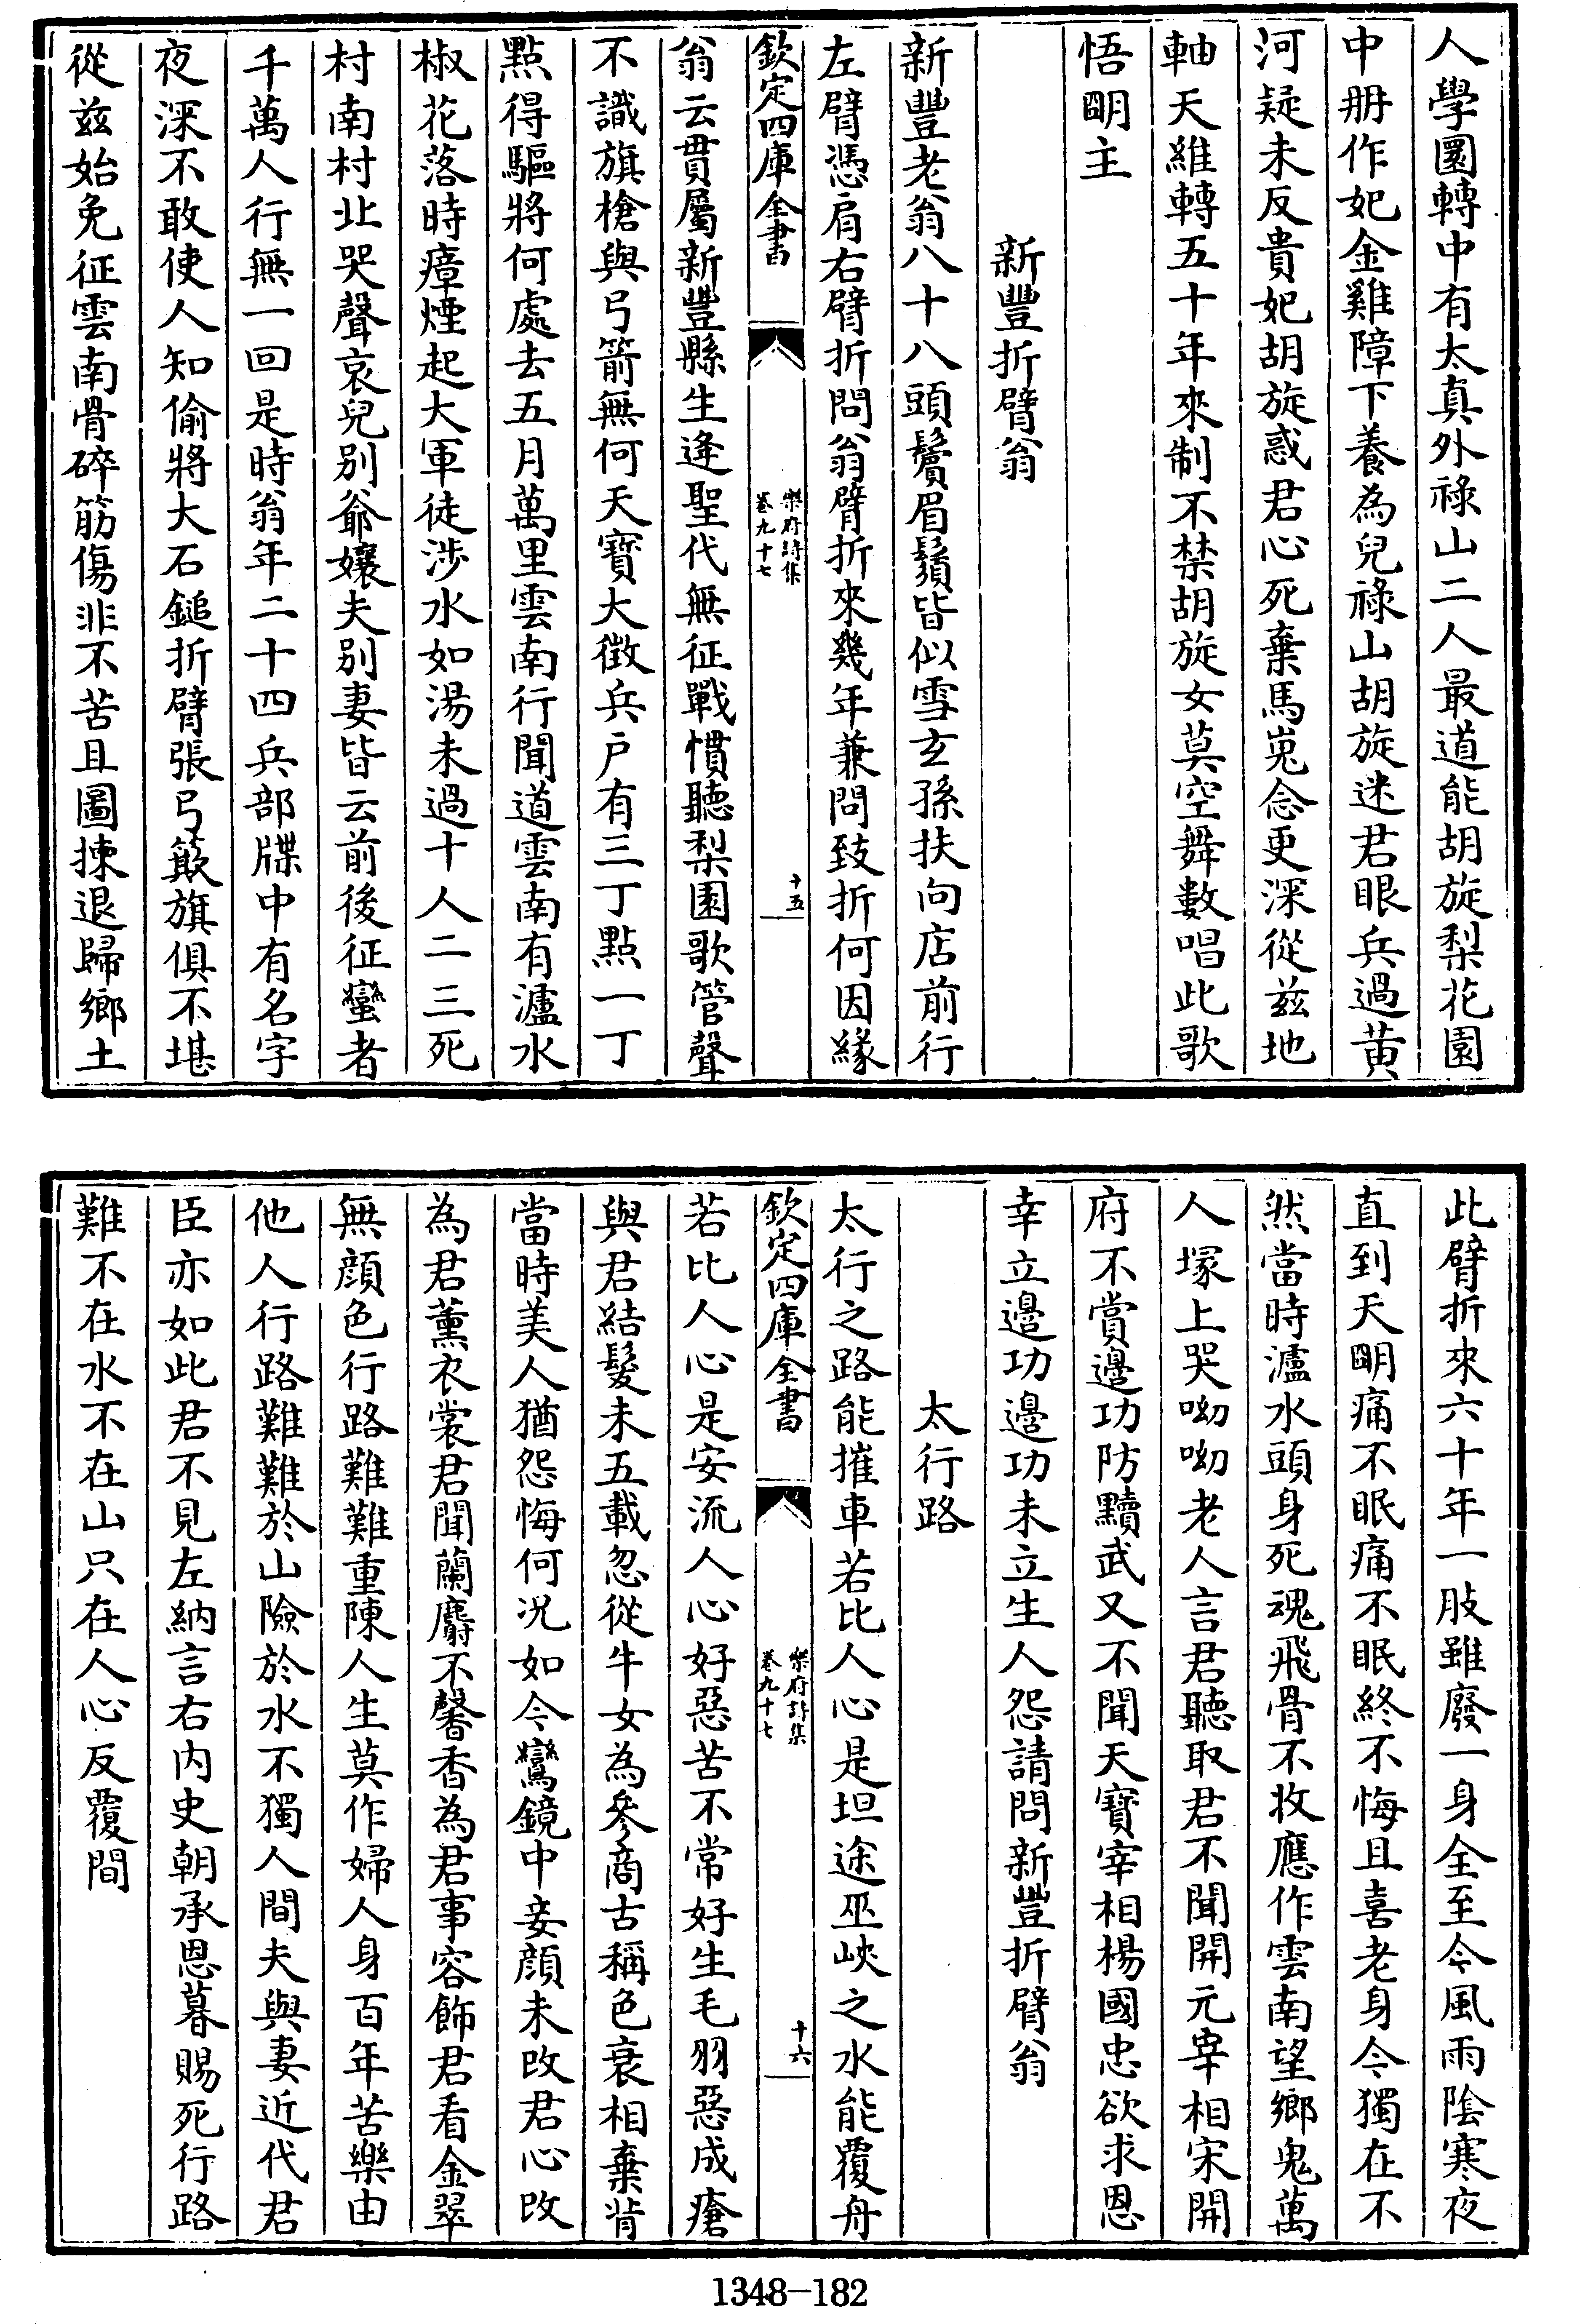 人學圜轉中有太真外祿山二人最道能胡旋梨花園
中冊作妃金雞障下養為兒祿山胡旋迷君眼兵過黄
河疑未反貴妃胡旋惑君心死棄馬嵬念更深從兹地
軸天維轉五十年來制不禁胡旋女莫空舞數唱此歌
悟明主
新豐折臂翁
新豐老翁八十八頭鬢眉鬚皆似雪玄孫扶向店前行
左臂憑肩右臂折問翁臂折來幾年兼問致折何因緣
欽定四庫全書
樂府詩集
卷九十七
十五
翁云貫屬新豐縣生逢聖代無征戰慣聽梨園歌管聲
不識旗槍與弓箭無何天寶大徴兵戶有三丁點一丁
點得驅將何處去五月萬里雲南行聞道雲南有瀘水
椒花落時瘴煙起大軍徒涉水如湯未過十人二三死
村南村北哭聲哀兒別爺孃夫別妻皆云前後征蠻者
千萬人行無一回是時翁年二十四兵部牒中有名字
夜深不敢使人知偷將大石鎚折臂張弓簸旗俱不堪
從兹始免征雲南骨碎筋傷非不苦且圖揀退歸鄉土
此臂折來六十年一肢雖廢一身全至今風雨陰寒夜
直到天明痛不眠痛不眠終不悔且喜老身今獨在不
然當時瀘水頭身死魂飛骨不收應作雲南望鄉鬼萬
人塚上哭呦呦老人言君聽取君不聞開元宰相宋開
府不賞邊功防黷武又不聞天寶宰相楊國忠欲求恩
幸立邊功邊功未立生人怨請問新豐折臂翁
太行路
太行之路能摧車若比人心是坦途巫峽之水能覆舟
欽定四庫全書
樂府詩集
卷九十七
十六
若比人心是安流人心好惡苦不常好生毛羽惡成瘡
與君結髮未五載忽從牛女為參商古稱色衰相棄背
當時美人猶怨悔何况如今鸞鏡中妾顔未改君心改
為君薰衣裳君聞蘭麝不馨香為君事容飾君看金翠
無顔色行路難難重陳人生莫作婦人身百年苦樂由
他人行路難難於山險於水不獨人間夫與妻近代君
臣亦如此君不見左納言右内史朝承恩暮賜死行路
難不在水不在山只在人心反覆間
1348-182